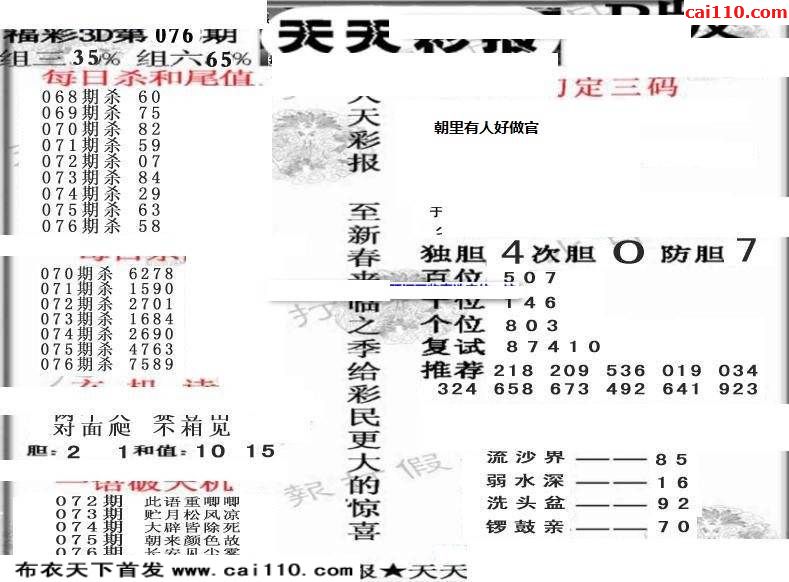 cai110.com
福彩3D第076期
天天彩报
组三35% 组六65%
每日杀和尾值
定三码
068期杀 60
069期杀 75
070期杀 82
071期杀 59
072期杀 07
073期杀 84
074期杀 29
075期杀 63
076期杀 58
朝里有人好做官
天彩报
至新春来临之季给彩民更大的惊喜
独胆4次胆0防胆7
百位 507
十位 146
个位 803
复试 87410
推荐 218 209 536 019 034
324 658 673 492 641 923
070期杀 6278
071期杀 1590
072期杀 2701
073期杀 1684
074期杀 2690
075期杀 4763
076期杀 7589
对面爬 不相见
胆:2 1和值:10 15
一语破天机
072期 此语重唧唧
073期 贮月松风凉
074期 大辟皆除死
075期 朝来颜色故
076期 长安见尘雾
流沙界——85
弱水深——16
洗头盆——92
锣鼓亲——70
打
報 假
布衣天下首发 www.cai110.com 报★天天